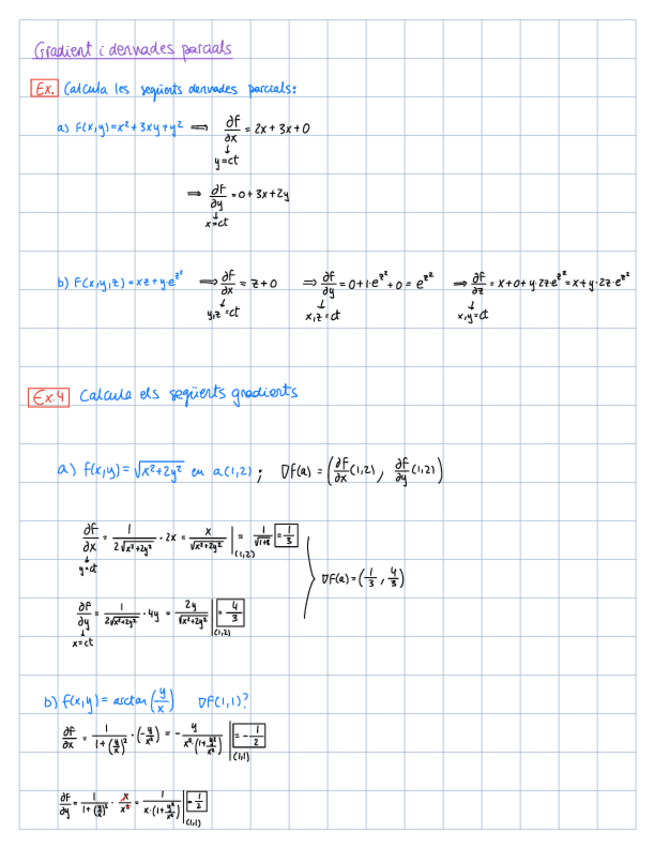 Gradient i derivades parcials
Ex. Calcula les següents derivades parcials:
a) F(x,y)=x²+3xy+y² ⟹ ∂F/∂x = 2x+3x+0
↓
y=ct
⟹ ∂F/∂y = 0+3x+2y
↓
x=ct
b) F(x,y,z)=xz+y·e^z² ⟹ ∂F/∂x = z+0 ⟹ ∂F/∂y = 0+1·e^z²+0 = e^z² ⟹ ∂F/∂z = x+0+y·2z·e^z² = x+y·2z·e^z²
↓ ↓ ↓
y,z=ct x,z=ct x,y=ct
Ex.4 Calcula els següents gradients
a) f(x,y)=√(x²+2y²) en a(1,2); ∇F(a) = (∂F/∂x(1,2), ∂F/∂y(1,2))
∂F/∂x = 1/(2√(x²+2y²)) · 2x = x/√(x²+2y²) |(1,2) = 1/√(1+8) = 1/3
↓
y=ct
∇F(a)=(1/3, 4/3)
∂F/∂y = 1/(2√(x²+2y²)) · 4y = 2y/√(x²+2y²) |(1,2) = 4/3
↓
x=ct
b) f(x,y)=arctan(y/x) ∇F(1,1)?
∂F/∂x = 1/(1+(y/x)²) · (-y/x²) = -y/(x²·(1+y²/x²)) |(1,1) = -1/2
∂F/∂y = 1/(1+(y/x)²) · x/x² = 1/(x·(1+y²/x²)) |(1,1) = 1/2